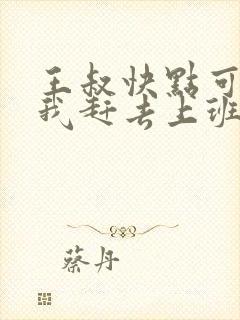 王叔快點可
我赶去上班
蔡丹